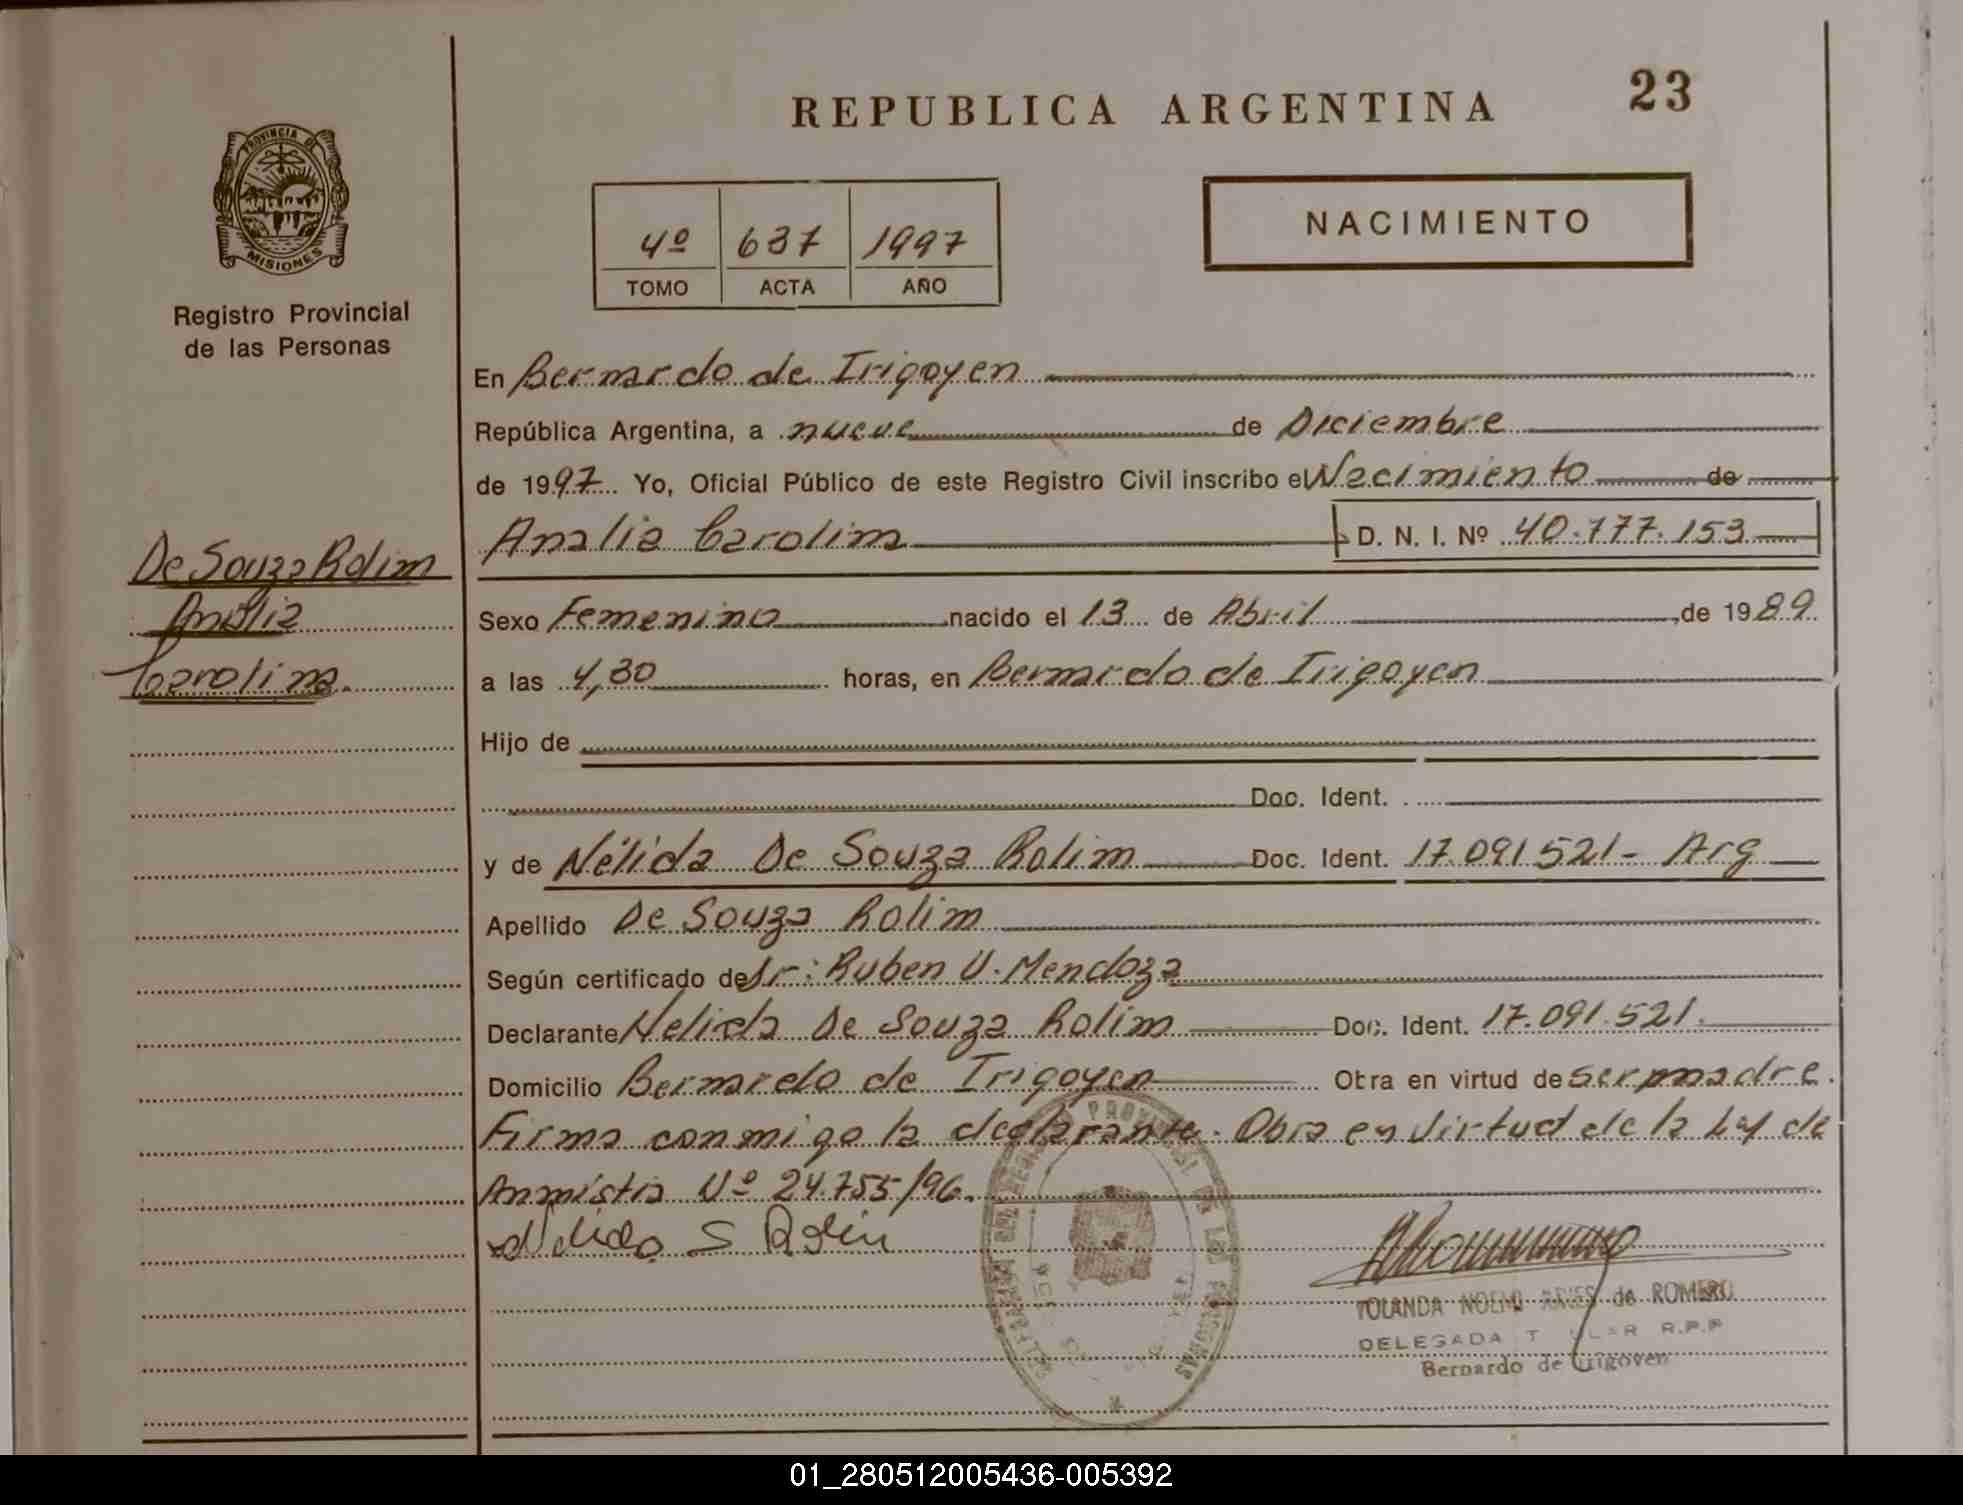 REPUBLICA ARGENTINA
23
PROVINCIA DE
MISIONES
Registro Provincial
de las Personas
4º 637 1997
TOMO ACTA AÑO
NACIMIENTO
En Bernardo de Irigoyen
República Argentina, a nueve de Diciembre
de 1997 Yo, Oficial Público de este Registro Civil inscribo el Nacimiento de
Analia Carolina D. N. I. Nº 40.777.153
De Souza Rolim
Analia
Carolina.
Sexo Femenino nacido el 13 de Abril, de 1989
a las 4,30 horas, en Bernardo de Irigoyen
Hijo de
Doc. Ident.
y de Nélida De Souza Rolim Doc. Ident. 17.091521- Arg
Apellido De Souza Rolim
Según certificado de Dr: Ruben V. Mendoza
Declarante Nelida De Souza Rolim Doc. Ident. 17.091.521.
Domicilio Bernardo de Irigoyen Obra en virtud de ser madre.
Firma conmigo la declarante. Obra en virtud de la Ley de
Anmistia Nº 24.755/96.
Nelida S Rolin
YOLANDA NOEMI de ROMERO
DELEGADA R.P.P
Bernardo de Irigoyen
01_280512005436-005392